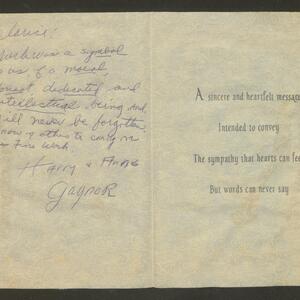 Clarice:
was a symbol
to us, of a moral,
honest, dedicated and
intellectual being and
will never be forgotten.
now of others to carry on
Fine Work.
Harry & Anne
Gaynor
A sincere and heartfelt message
Intended to convey
The sympathy that hearts can feel
But words can never say